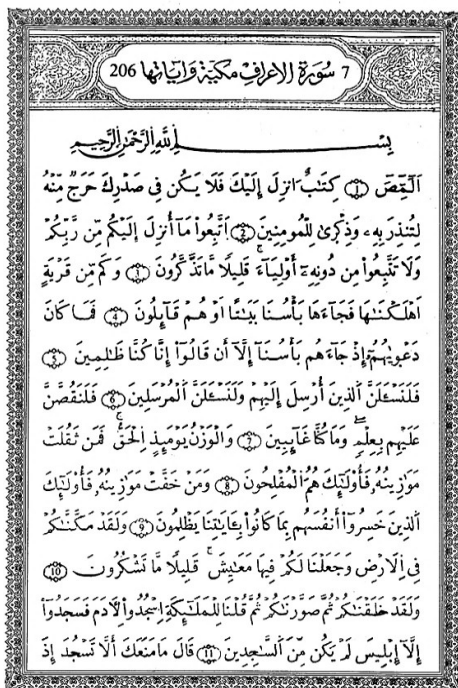 7 سُورَةُ الاَعْرَافِ مَكِّيَّةٌ وَءَايَاتُهَا 206
بِسْمِ اللَّهِ الرَّحْمَٰنِ الرَّحِيمِ
أَلَٓمِّٓصَٓ ١ كِتَٰبٌ اُنزِلَ إِلَيْكَ فَلَا يَكُن فِى صَدْرِكَ حَرَجٌ مِّنْهُ
لِتُنذِرَ بِهِۦ وَذِكْرَىٰ لِلْمُومِنِينَ ٢ اَتَّبِعُواْ مَآ أُنزِلَ إِلَيْكُم مِّن رَّبِّكُمْ
وَلَا تَتَّبِعُواْ مِن دُونِهِۦٓ أَوْلِيَآءَ قَلِيلًا مَّا تَذَّكَّرُونَ ٣ وَكَم مِّن قَرْيَةٍ
اَهْلَكْنَٰهَا فَجَآءَهَا بَأْسُنَا بَيَٰتًا اَوْ هُمْ قَآئِلُونَ ٤ فَمَا كَانَ
دَعْوَىٰهُمُۥٓ إِذْ جَآءَهُم بَأْسُنَآ إِلَّآ أَن قَالُوٓاْ إِنَّا كُنَّا ظَٰلِمِينَ ٥
فَلَنَسْـَٔلَنَّ اَلذِينَ أُرْسِلَ إِلَيْهِمْ وَلَنَسْـَٔلَنَّ اَلْمُرْسَلِينَ ٦ فَلَنَقُصَّنَّ
عَلَيْهِم بِعِلْمٍ وَمَا كُنَّا غَآئِبِينَ ٧ وَالْوَزْنُ يَوْمَئِذٍ اِلْحَقُّ فَمَن ثَقُلَتْ
مَوَٰزِينُهُۥ فَأُوْلَٰٓئِكَ هُمُ اُلْمُفْلِحُونَ ٨ وَمَنْ خَفَّتْ مَوَٰزِينُهُۥ فَأُوْلَٰٓئِكَ
اَلذِينَ خَسِرُوٓاْ أَنفُسَهُم بِمَا كَانُواْ بِـَٔايَٰتِنَا يَظْلِمُونَ ٩ وَلَقَدْ مَكَّنَّٰكُمْ
فِى اِلَارْضِ وَجَعَلْنَا لَكُمْ فِيهَا مَعَٰيِشَ قَلِيلًا مَّا تَشْكُرُونَ ١٠
وَلَقَدْ خَلَقْنَٰكُمْ ثُمَّ صَوَّرْنَٰكُمْ ثُمَّ قُلْنَا لِلْمَلَٰٓئِكَةِ اِسْجُدُواْ لِأَدَمَ فَسَجَدُوٓاْ
إِلَّآ إِبْلِيسَ لَمْ يَكُن مِّنَ اَلسَّٰجِدِينَ ١١ قَالَ مَا مَنَعَكَ أَلَّا تَسْجُدَ إِذَ